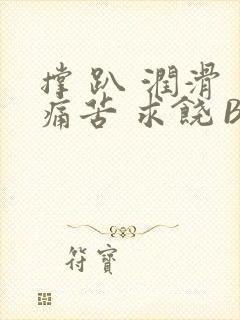 撑 趴 潤滑
痛苦 求饒 B
符寶